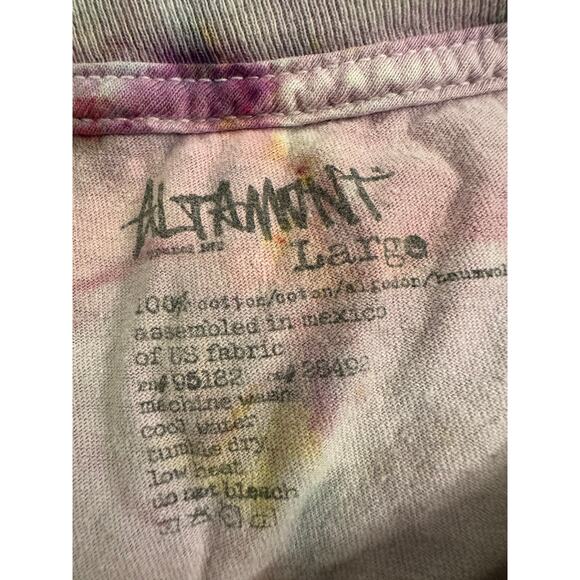 ALTAMONT
Large
100% cotton/coton/algodon/baumwol
assembled in mexico
of US fabric
rn# 95182 ca# 28492
machine wash
cool water
tumble dry
low heat
do not bleach